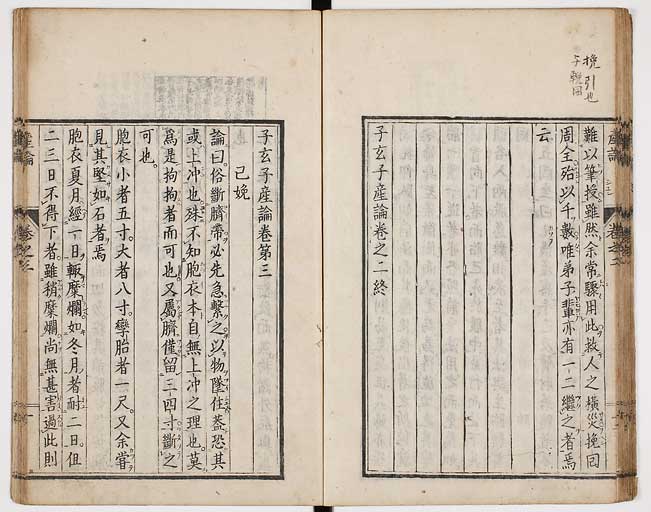 挽引也
与輓同
難以筆授雖然余常驟用此救人之横災挽回
周全殆以千數唯弟子輩亦有一二繼之者焉
云
子玄子産論卷之二終
産論
子玄子産論卷第三
已娩
論曰俗斷臍帶必先急繫之以物墜住蓋恐其
或上冲也殊不知胞衣本自無上冲之理也莫
爲是拘拘者而可也又屬臍僅留三四寸斷之
可也
胞衣小者五寸大者八寸孿胎者一尺又余嘗
見其堅如石者焉
胞衣夏月經一日輙糜爛如冬月者耐二日但
二三日不得下者雖稍糜爛尚無甚害過此則
産論